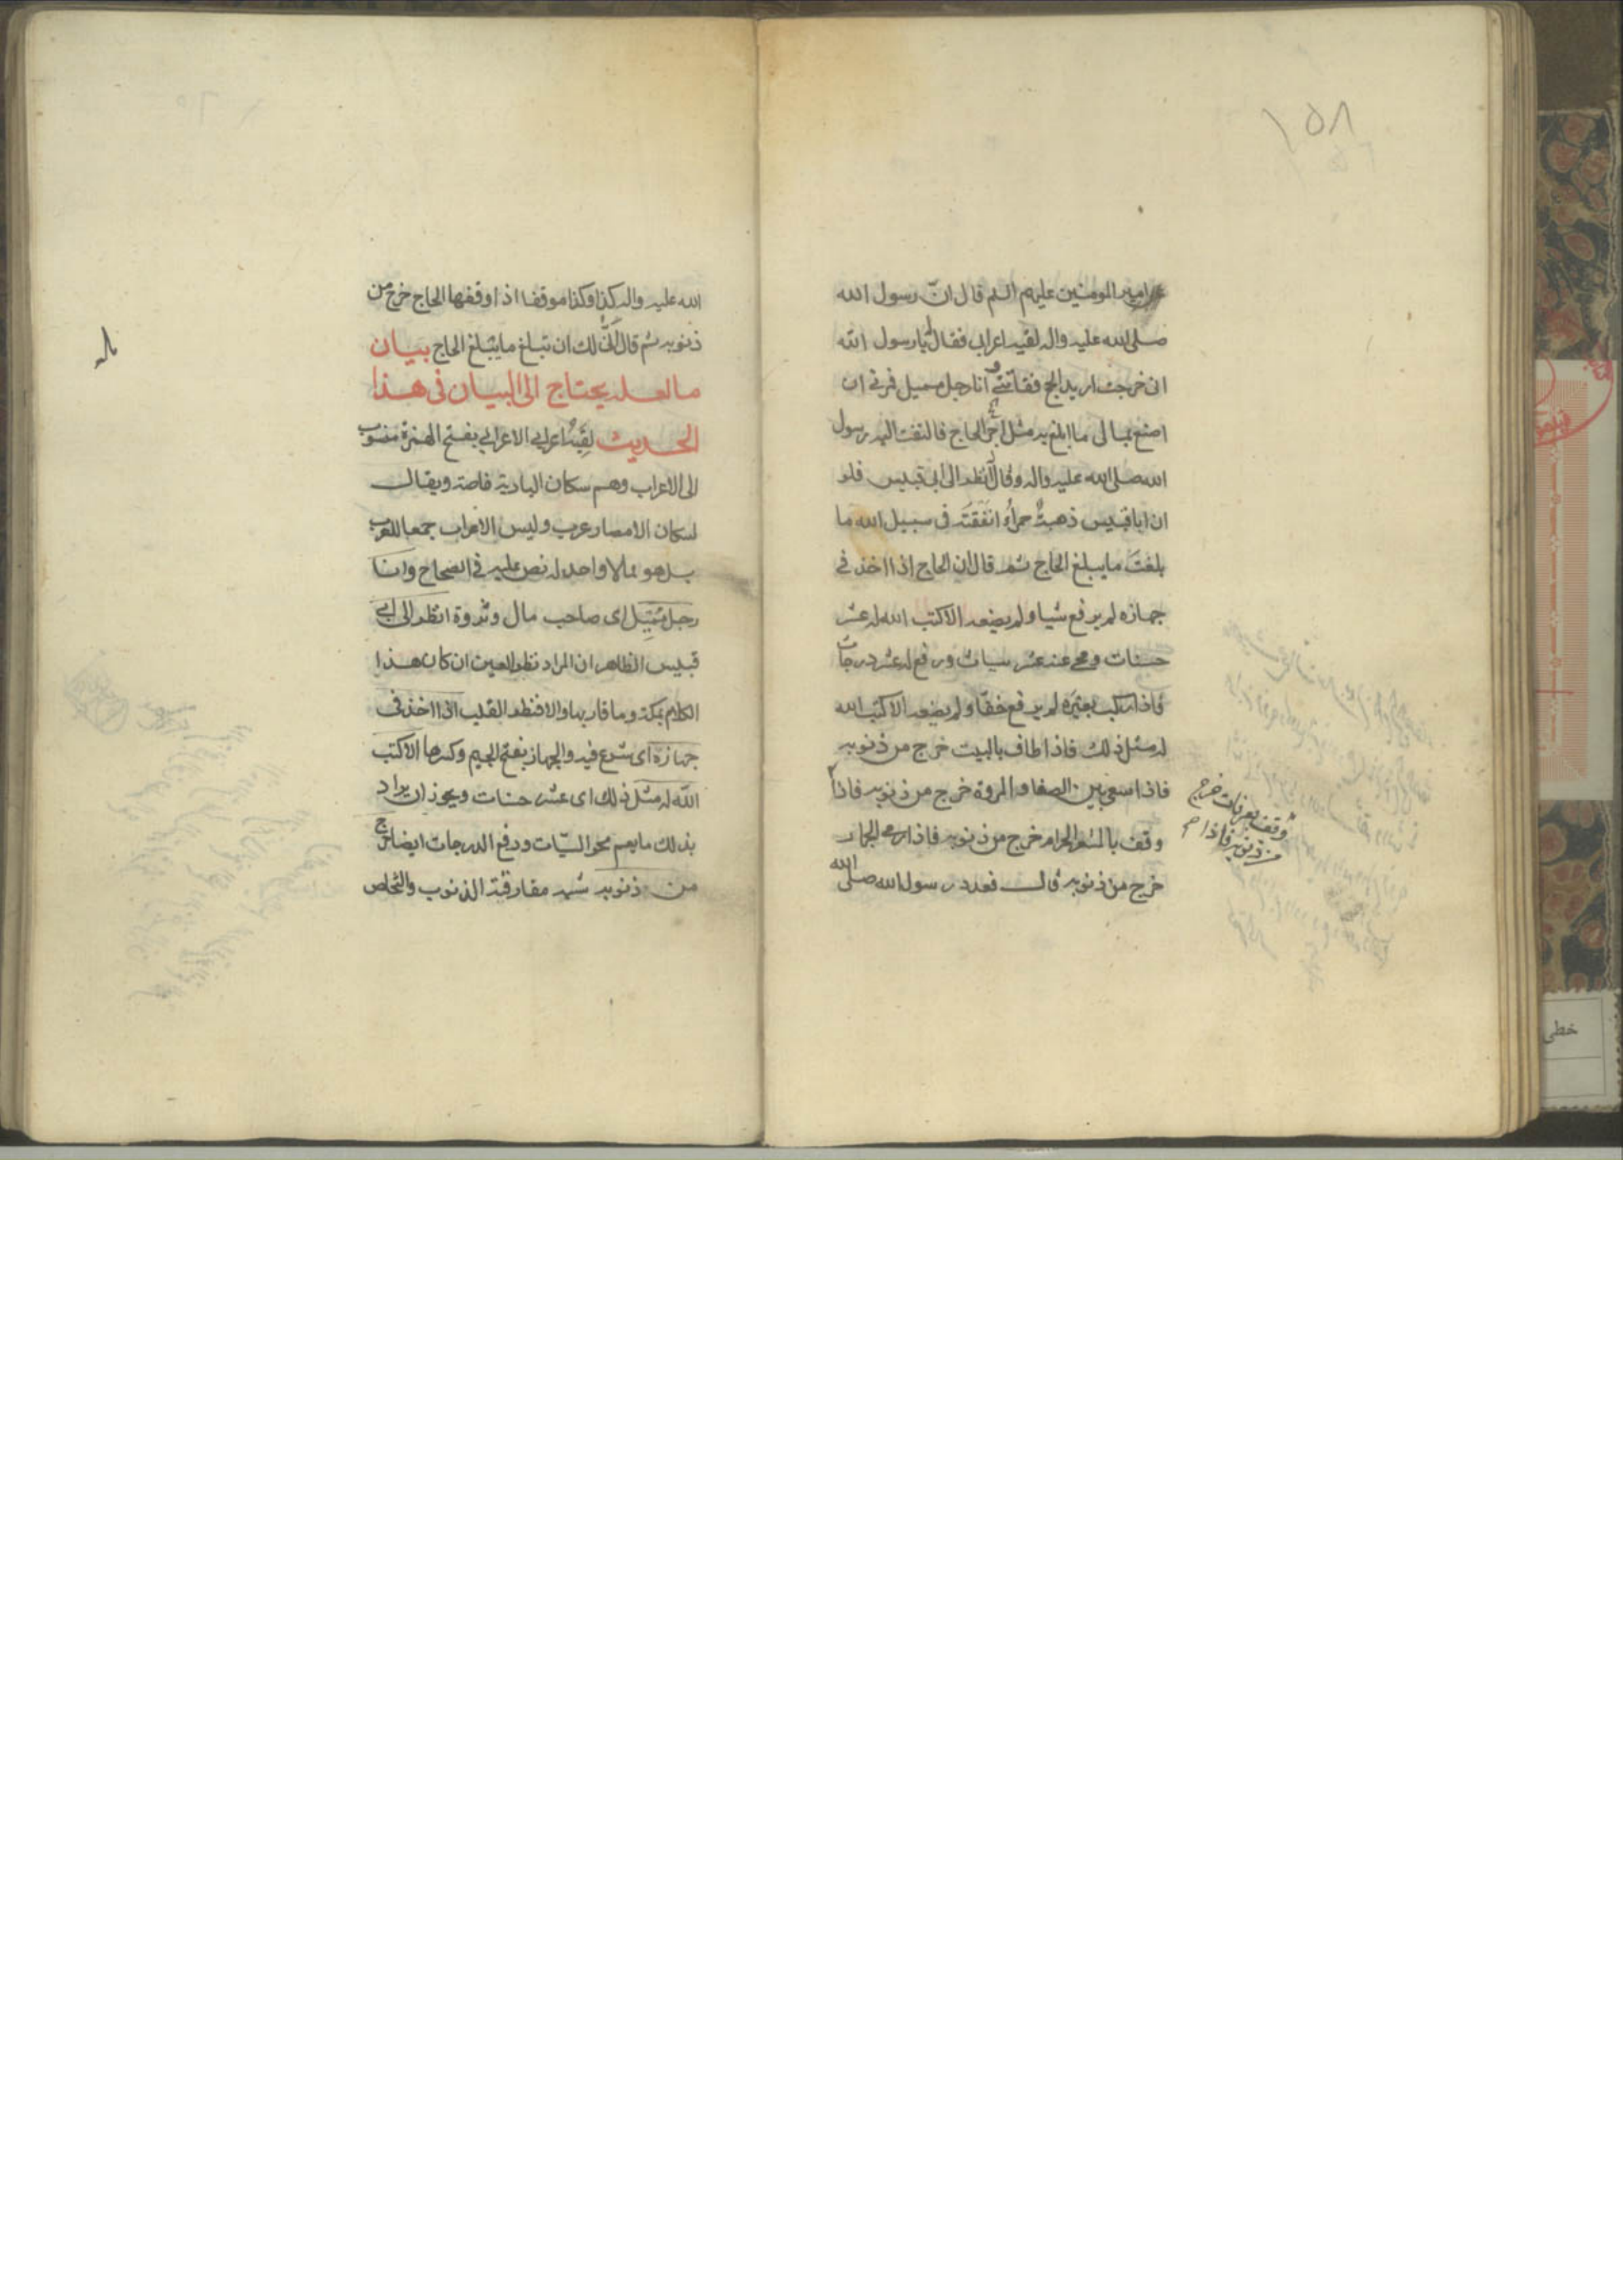 ١٥٨
امیر المومنین علیهم السلم قال انّ رسول الله
صلی الله علیه واله لقیه اعرابی فقال له یا رسول الله
انی خرجت ارید الحج ففاتنی وانا رجل ممیل فمرنی ان
اصنع بمالی ما ابلغ به مثل اجر الحاج فالتفت الیه رسول
الله صلی الله علیه واله وقال له انظر الی ابی قبیس فلو
ان ابا قبیس ذهبةٌ حمراءُ انفقتَه فی سبیل الله ما
بلغتَ ما یبلغ الحاج ثم قال ان الحاج اذا اخذ فی
جهازه لم یرفع شیا ولم یضعه الا کتب الله له عشر
حسنات ومحی عنه عشر سیات ورفع له عشر درجات
فاذا رکب بعیره لم یرفع خفّا ولم یضعه الا کتب الله
له مثل ذلک فاذا طاف بالبیت خرج من ذنوبه
فاذا سعی بین الصفا والمروة خرج من ذنوبه فاذا
وقف بعرفات خرج
من ذنوبه فاذا م
وقف بالمشعر الحرام خرج من ذنوبه فاذا رمی الجمار
خرج من ذنوبه قال فعدد رسول الله صلی الله
الله علیه واله کذا وکذا موقفا اذا وقفها الحاج خرج من
ذنوبه ثم قال انّی لک ان تبلغ ما یبلغ الحاج بیان
ما لعله یحتاج الی البیان فی هذا
الحدیث لقیه اعرابی الاعرابی بفتح الهمزة منسوب
الی الاعراب وهم سکان البادیة خاصة ویقال
لسکان الامصار عرب ولیس الاعراب جمعا للعرب
بل هو مما لا واحد له نص علیه فی الصحاح وانا
رجل ممیّل ای صاحب مال وثروة انظر الی ابی
قبیس الظاهر ان المراد نظر العین ان کان هذا
الکلام بمکة وما قاربها والا فنظر القلب اذا اخذ فی
جهازه ای شرع فیه والجهاز بفتح الجیم وکسرها الا کتب
الله له مثل ذلک ای عشر حسنات ویجوز ان یراد
بذلک ما یعم محو السیّات ورفع الدرجات ایضا خرج
من ذنوبه شبه مفارقة الذنوب والتخلص
خطی